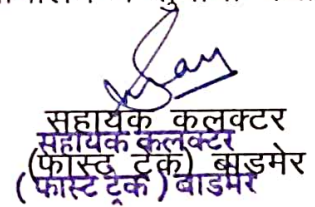 सहायक कलक्टर
सहायक कलक्टर
(फास्ट ट्रेक) बाडमेर
(फास्ट ट्रेक) बाडमेर